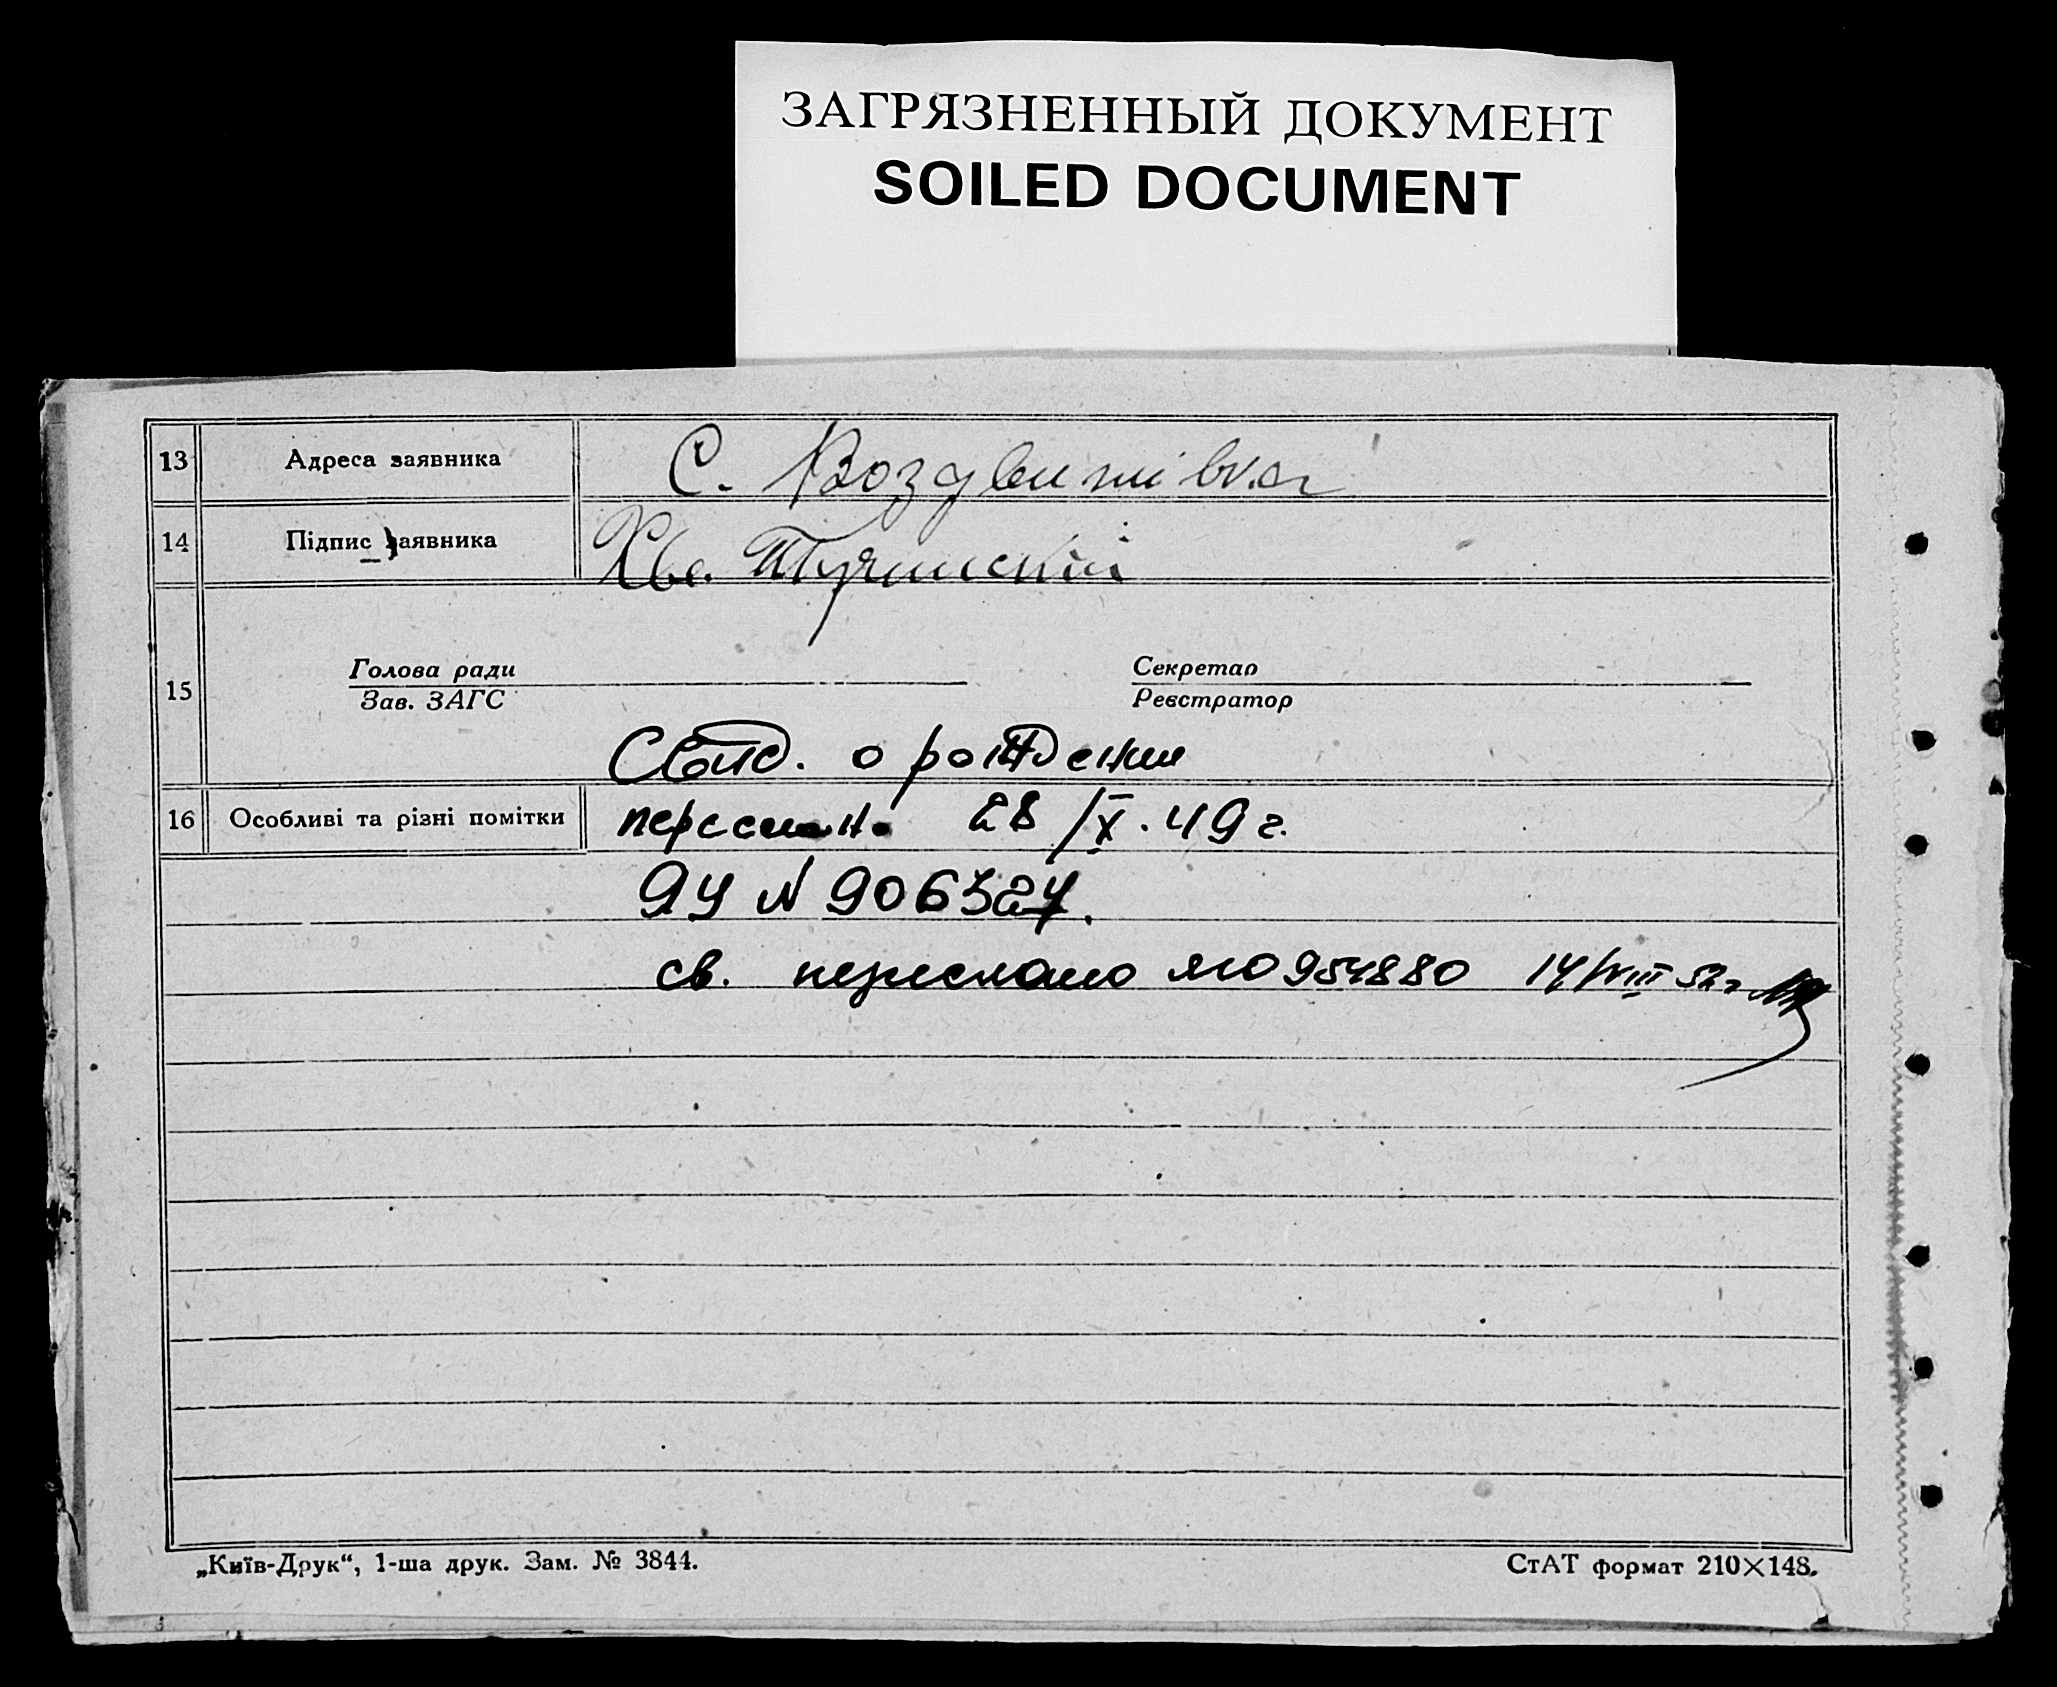 ЗАГРЯЗНЕННЫЙ ДОКУМЕНТ
SOILED DOCUMENT
13 Адреса заявника С. Воздвижівка
14 Підпис заявника Хве.
15 Голова ради Секретар
Зав. ЗАГС Реєстратор
Свид. о рождении
16 Особливі та різні помітки переслано 28/IX.49 г.
ЯЧ N 906327.
св. переслано ЯЮ 954880 14/VIII 52 г
„Київ-Друк“, 1-ша друк. Зам. № 3844. СтАТ формат 210×148.